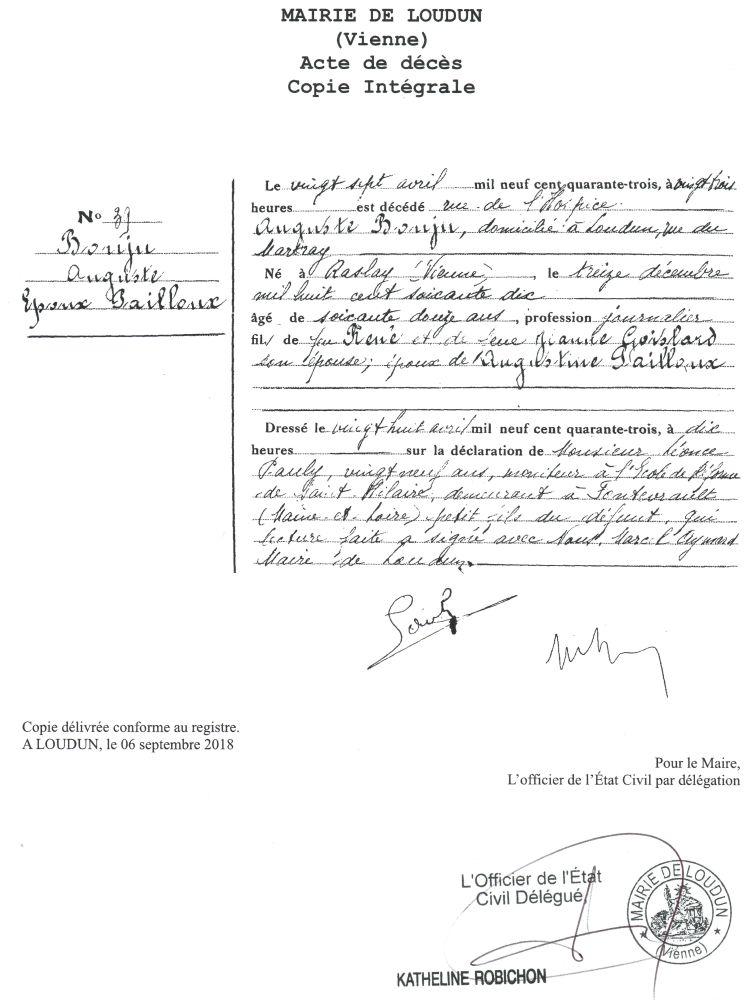 MAIRIE DE LOUDUN
(Vienne)
Acte de décès
Copie Intégrale
No 39
Bouju
Auguste
Epoux Pailloux
Le vingt sept avril mil neuf cent quarante-trois, à vingt trois
heures est décédé rue de l'Hospice
Auguste Bouju, domicilié à Loudun, rue du
Martray
Né à Raslay (Vienne), le treize décembre
mil huit cent soixante dix
âgé de soixante douze ans, profession journalier
fil/ de feu René et de feue Jeanne
son épouse; époux de Augustine Pailloux
Dressé le vingt huit avril mil neuf cent quarante-trois, à dix
heures sur la déclaration de Monsieur Léonce
Pauly, vingt neuf ans, moniteur à l'Ecole de Réforme
de Saint Hilaire, demeurant à Fontevrault
(Maine et Loire) petit fils du défunt, qui
lecture faite a signé avec Nous, Marc Aymard
Maire de Loudun.
Copie délivrée conforme au registre.
A LOUDUN, le 06 septembre 2018
Pour le Maire,
L'officier de l'État Civil par délégation
L'Officier de l'État
Civil Délégué,
MAIRIE DE LOUDUN
(Vienne)
KATHELINE ROBICHON